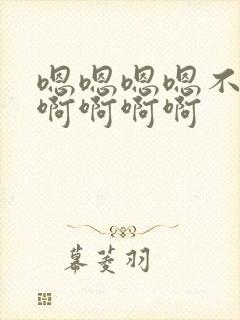 嗯嗯嗯嗯不
啊啊啊啊
幕菱羽